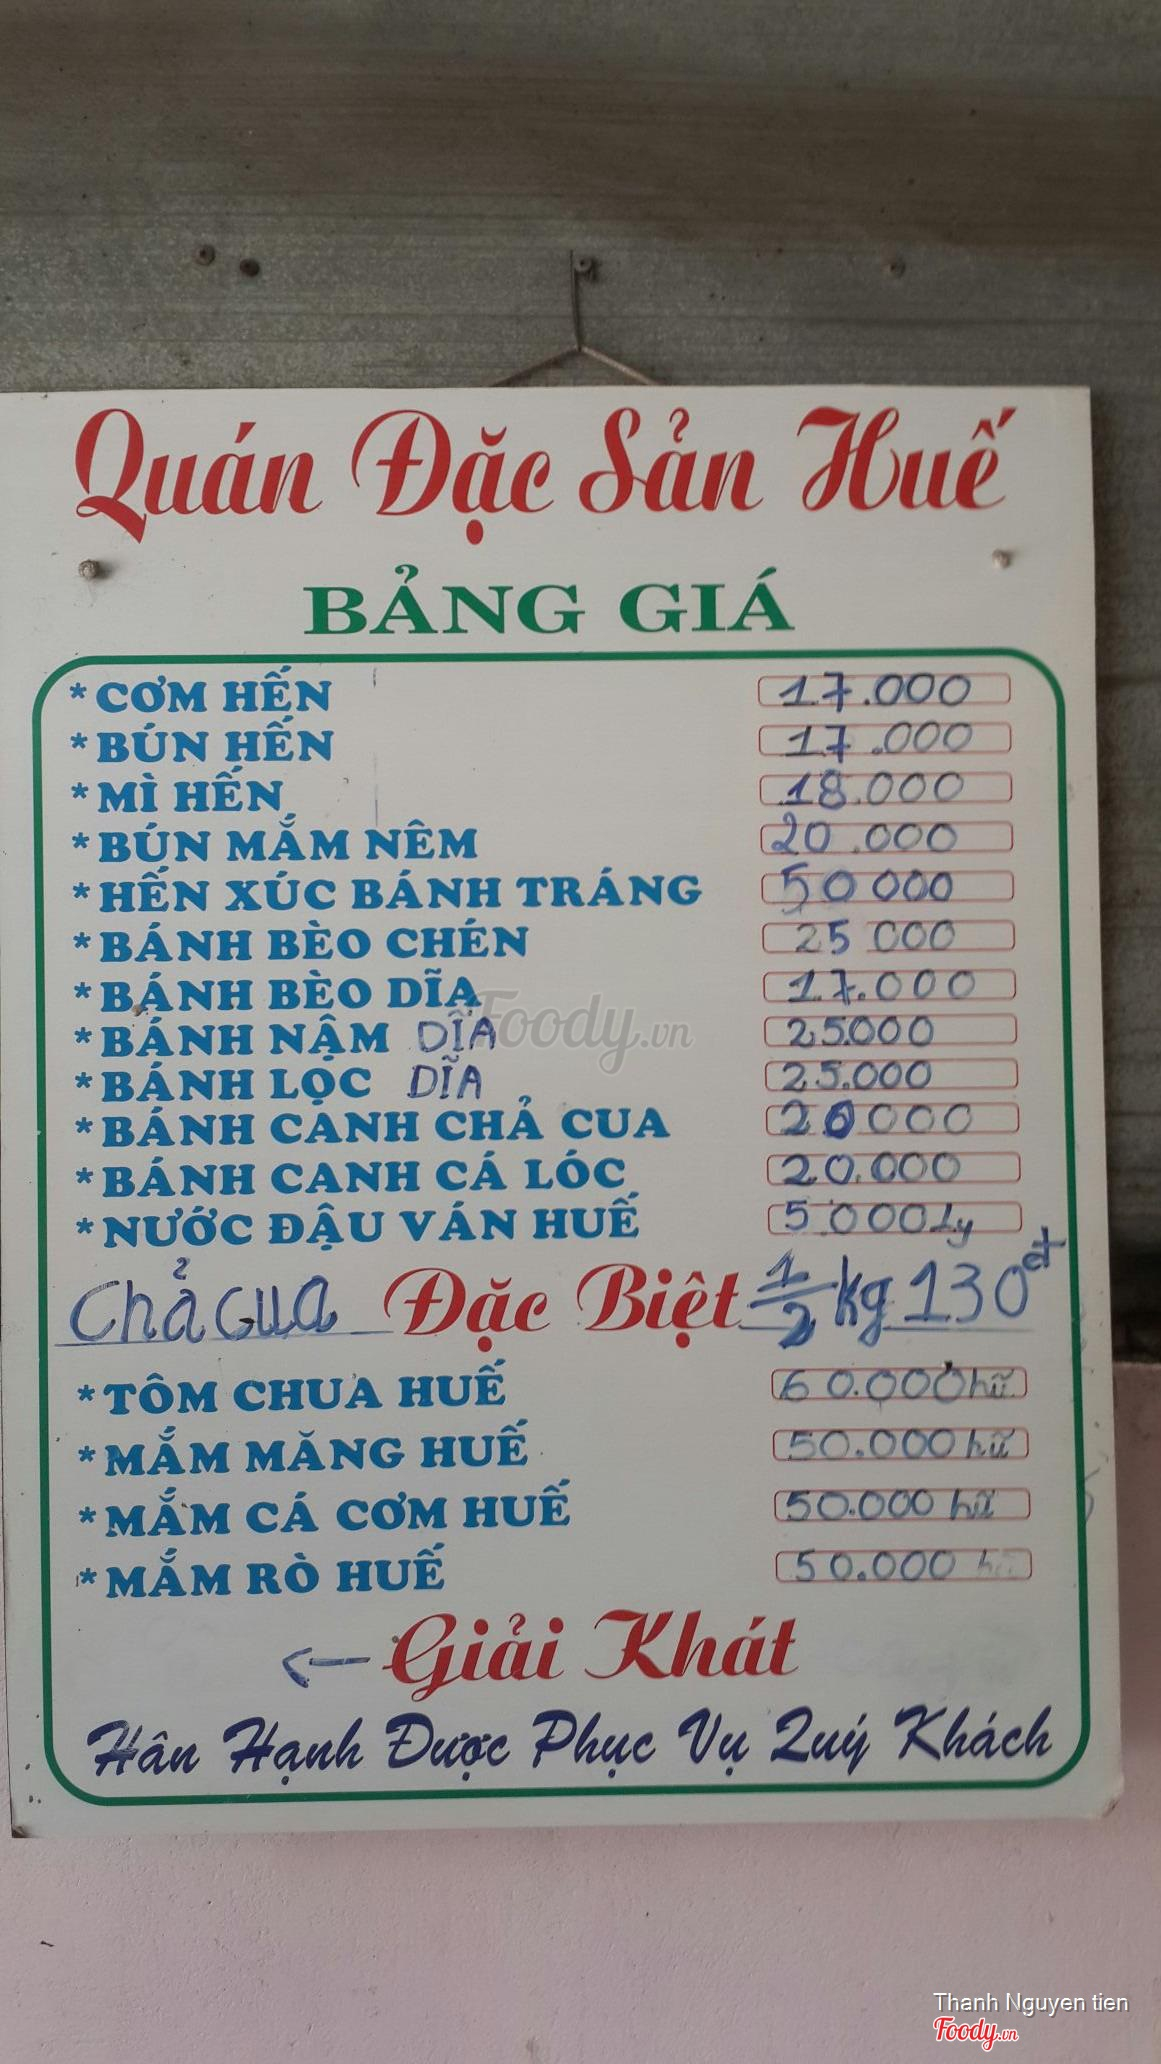 Quán Đặc Sản Huế
BẢNG GIÁ
* CƠM HẾN 17.000
* BÚN HẾN 17.000
* MÌ HẾN 18.000
* BÚN MẮM NÊM 20.000
* HẾN XÚC BÁNH TRÁNG 50 000
* BÁNH BÈO CHÉN 25 000
* BÁNH BÈO DĨA 17.000
* BÁNH NẬM DĨA 25.000
* BÁNH LỌC DĨA 25.000
* BÁNH CANH CHẢ CUA 20000
* BÁNH CANH CÁ LÓC 20.000
* NƯỚC ĐẬU VÁN HUẾ 5.000 Ly
Chả cua Đặc Biệt 1/2 kg 130đ
* TÔM CHUA HUẾ 60.000 hũ
* MẮM MĂNG HUẾ 50.000 hũ
* MẮM CÁ CƠM HUẾ 50.000 hũ
* MẮM RÒ HUẾ 50.000 hũ
← Giải Khát
Hân Hạnh Được Phục Vụ Quý Khách
Foody.vn
Thanh Nguyen tien
Foody.vn